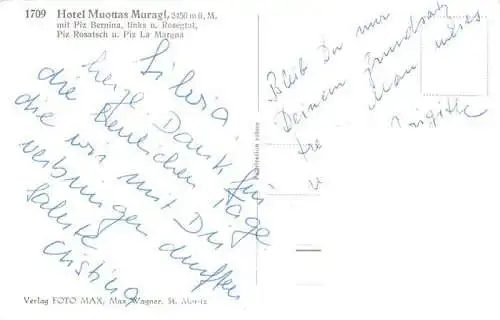 1709 Hotel Muottas Muragl, 2450 m ü. M.
mit Piz Bernina, links u. Rosegtal,
Piz Rosatsch u. Piz La Margna
Silvia,
herzl. Dank für
die herrlichen Tage
die wir mit Dir
verbringen durften
Salute
Christina
Bleib Du nur
Deinem Grundsatz
tre
Brigitte
Verlag FOTO MAX, Max Wagner, St. Moritz